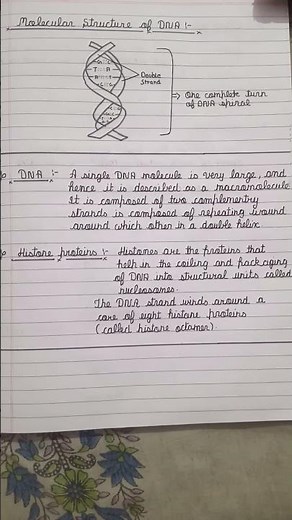 Molecular Structure of DNA :-
Double
Strand
→ One complete turn
of DNA spiral
DNA :- A single DNA molecule is very large, and
hence it is described as a macromolecule
It is composed of two complementry
strands is composed of repeating wound
around which other in a double helix
Histone proteins :- Histones are the proteins that
help in the coiling and packaging
of DNA into structural units called
nucleosomes.
The DNA strand winds around a
core of eight histone proteins
(called histone octamer).